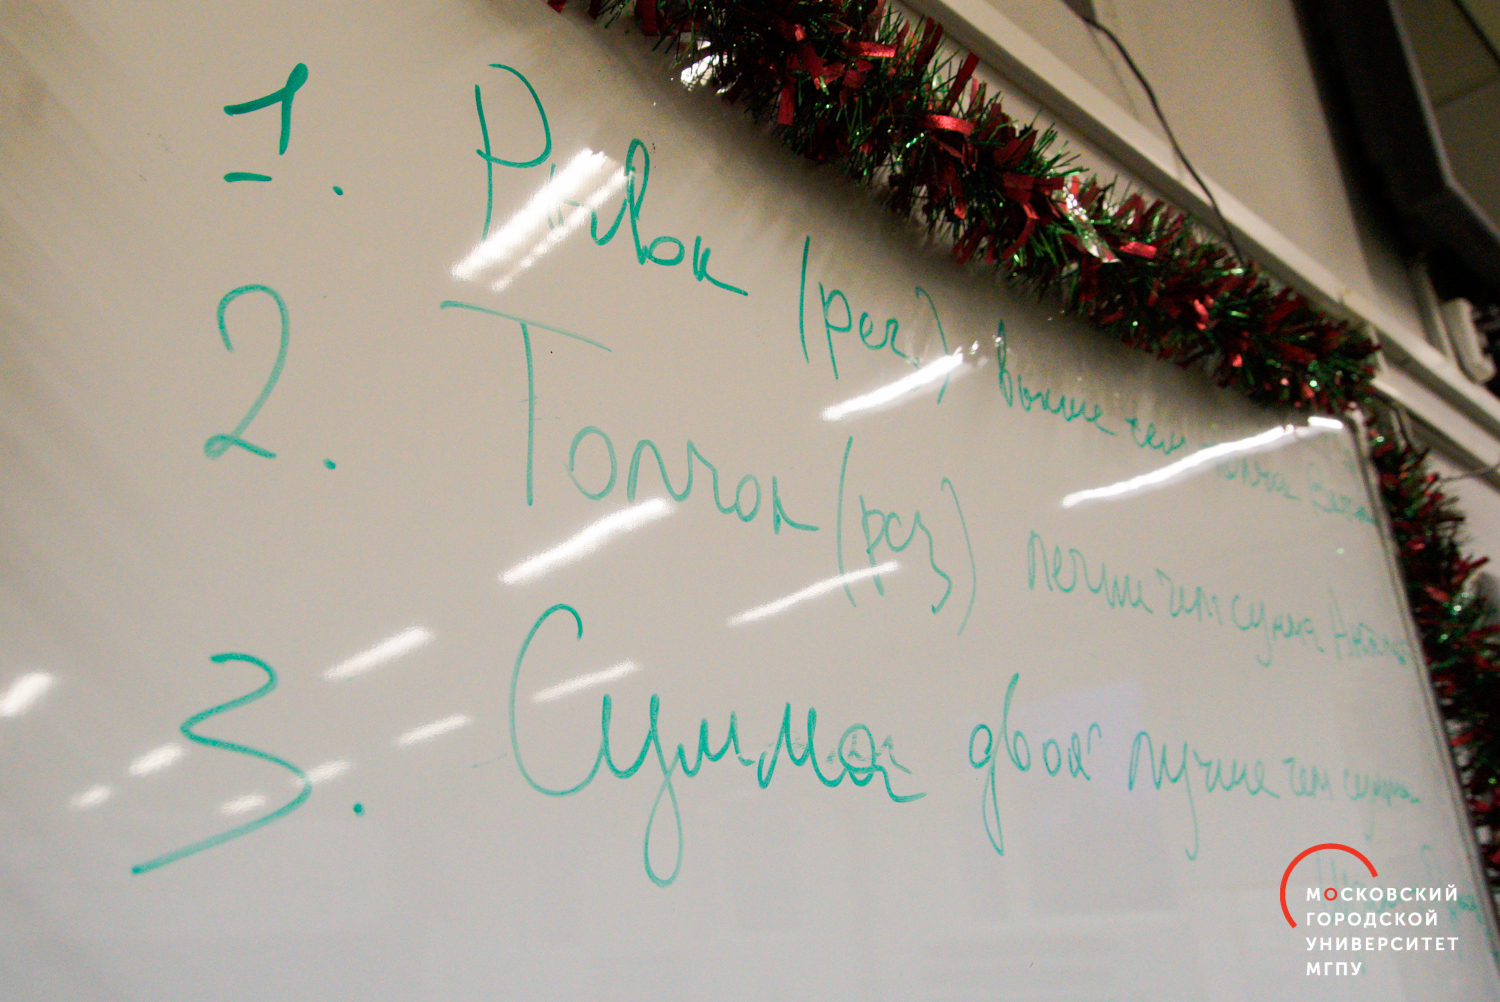 1. Рывок (рез) выше чем толчка
2. Толчок (рез) лучше чем сумма
3. Сумма двоя лучше чем сумма
МОСКОВСКИЙ
ГОРОДСКОЙ
УНИВЕРСИТЕТ
МГПУ